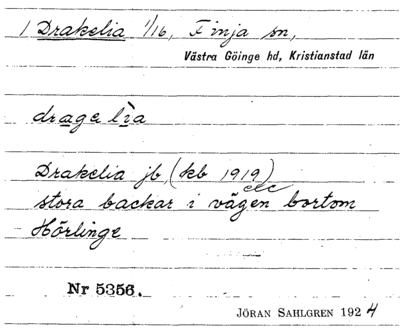 1 Drakelia 1/16, Finja sn,
Västra Göinge hd, Kristianstad län
drage lìa
Drakelia jb, (kb 1919)
etc
stora backar i vägen bortom
Hörlinge
Nr 5356.
JÖRAN SAHLGREN 1924